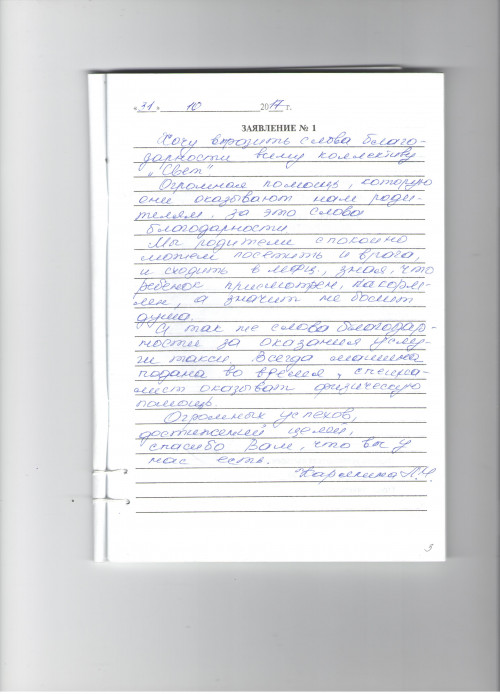 «31» 10 2017 г.
ЗАЯВЛЕНИЕ № 1
Хочу вырозить слова благо-
дарности всему коллективу
„Свет"
Огромная помощь, которую
они оказывают нам роди-
телям. За это слова
благодарности.
Мы родители спокойно
можем посетить и врача,
и сходить в МФЦ, зная, что
ребенок присмотрен, накорм-
лен, а значит не болит
душа.
А так же слова благодар-
ности за оказания услу-
ги такси. Всегда машина
подана во время, специа-
лист оказывает физическую
помощь.
Огромных успехов,
достижений целей,
спасибо Вам, что вы у
нас есть.
3